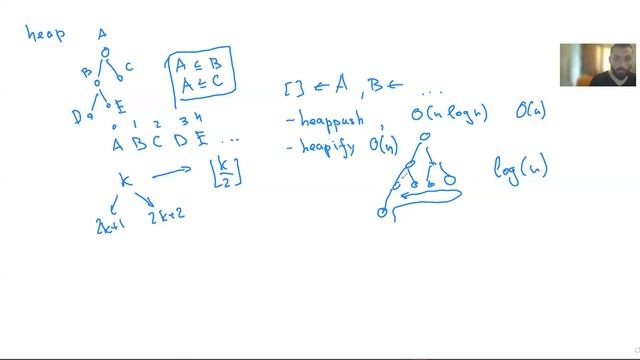 heap
A
B C
D E
A ≤ B
A ≤ C
0 1 2 3 4
A B C D E ...
k → [k/2]
2k+1 2k+2
[] ← A , B ← ...
- heappush , O(n log n) O(n)
- heapify O(n)
log(n)